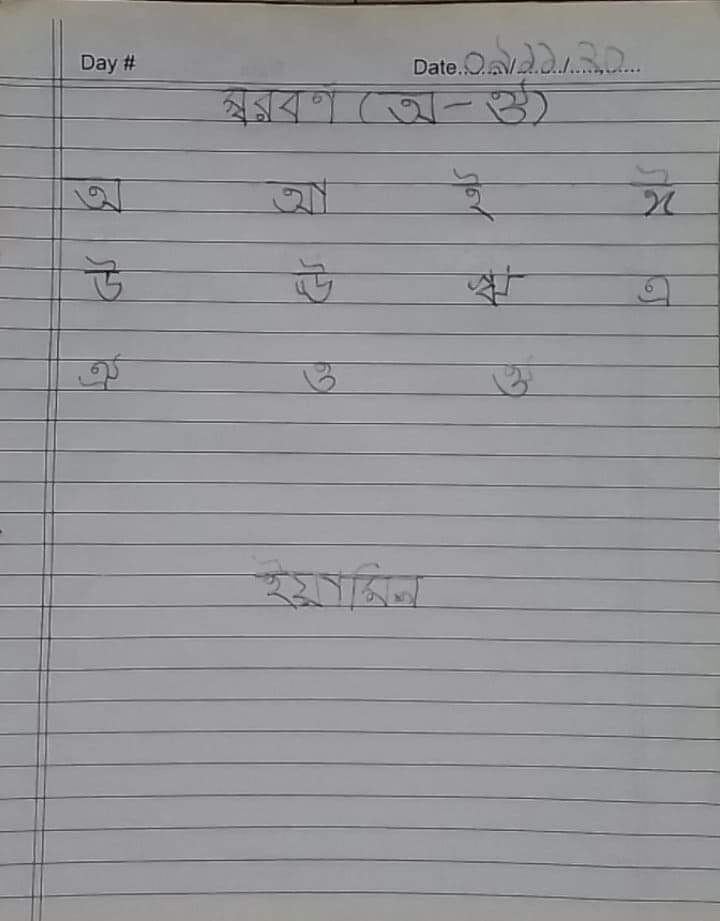 Day # Date..০৯/১১/২০
স্বরবর্ণ (অ - ঔ)
অ আ ই ঈ
উ ঊ ঋ এ
ঐ ও ঔ
ইয়ামিন